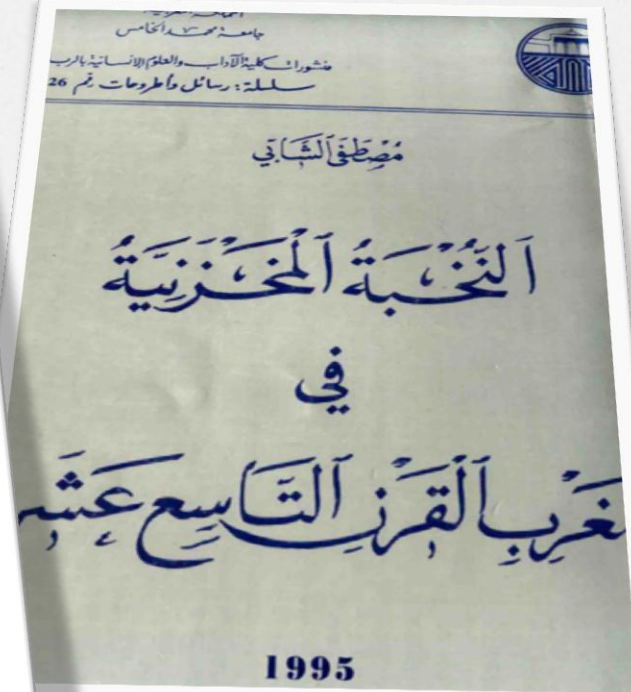 جامعة محمد الخامس
منشورات كلية الآداب والعلوم الإنسانية بالرب
سلسلة: رسائل وأطروحات رقم 26
مُصْطَفَى الشَّابِّي
اَلنُّخْبَةُ اَلْمَخْزَنِيَّةُ
فِي
مَغْرِبِ اَلْقَرْنِ اَلتَّاسِعِ عَشَر
1995